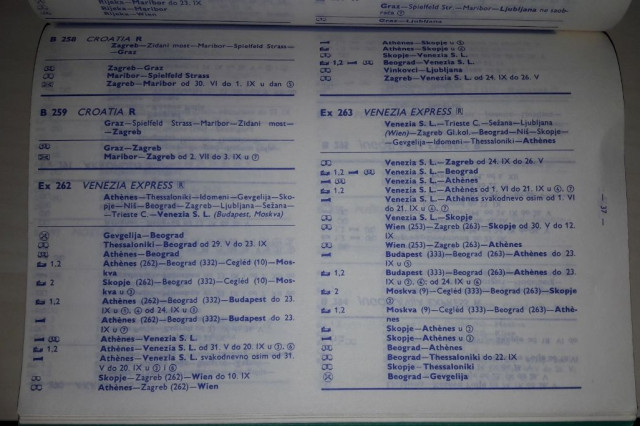 Rijeka—Maribor do 23. IX
Rijeka—Maribor
Rijeka—Wien
B 258 CROATIA R
Zagreb—Zidani most—Maribor—Spielfeld Strass—
—Graz
Zagreb—Graz
Maribor—Spielfeld Strass
Zagreb—Maribor od 30. VI do 1. IX u dan ①
B 259 CROATIA R
Graz—Spielfeld Strass—Maribor—Zidani most—
—Zagreb
Graz—Zagreb
Maribor—Zagreb od 2. VII do 3. IX u ⑦
Ex 262 VENEZIA EXPRESS R
Athènes—Thessaloniki—Idomeni—Gevgelija—Sko-
pje—Niš—Beograd—Zagreb—Ljubljana—Sežana—
—Trieste C.—Venezia S. L. (Budapest, Moskva)
Gevgelija—Beograd
Thessaloniki—Beograd od 29. V do 23. IX
Athènes—Beograd
1,2 Athènes (262)—Beograd (332)—Cegléd (10)—Mos-
kva
2 Skopje (262)—Beograd (332)—Cegléd (10)—Mos-
kva u
1,2 Athènes (262)—Beograd (332)—Budapest do 23.
IX u od 24. IX u
1 Athènes (262)—Beograd (332)—Budapest do 23.
IX u ⑦
1 Athènes—Venezia S. L.
1,2 Athènes—Venezia S. L. od 31. V do 20. IX u
1 Athènes—Venezia S. L. svakodnevno osim od 31.
V do 20. IX u i
Skopje—Zagreb (262)—Wien do 10. IX
Athènes—Zagreb (262)—Wien
Spielfeld Str.—Maribor—Ljubljana ne saob-
Graz—Ljubljana
1 Athènes—Skopje u
Athènes—Skopje u
1,2 1 Beograd—Venezia S. L.
Vinkovci—Ljubljana
Zagreb—Venezia S. L. od 24. IX do 26. V
Ex 263 VENEZIA EXPRESS R
Venezia S. L.—Trieste C.—Sežana—Ljubljana
(Wien)—Zagreb Gl.kol.—Beograd—Niš—Skopje—
—Gevgelija—Idomeni—Thessaloniki—Athènes
Venezia S. L.—Zagreb od 24. IX do 26. V
1,2 1 Venezia S. L.—Beograd
1 Venezia S. L.—Athènes
1,2 Venezia S. L.—Athènes od 1. VI do 21. IX u
1 Venezia S. L.—Athènes svakodnevno osim od 1. VI
do 21. IX u
Venezia S. L.—Skopje
Wien (253)—Zagreb (263)—Skopje od 30. V do 12.
IX
Wien (253)—Zagreb (263)—Athènes
1 Budapest (333)—Beograd (263)—Athènes do 23.
IX u
1,2 Budapest (333)—Beograd (263)—Athènes do 23.
IX u od 24. IX u
2 Moskva (9)—Cegléd (333)—Beograd (263)—Skopje
1,2 Moskva (9)—Cegléd (333)—Beograd (263)—Athè-
nes
Skopje—Athènes u
Skopje—Athènes u
Beograd—Athènes
Beograd—Thessaloniki do 22. IX
Skopje—Thessaloniki
Beograd—Gevgelija